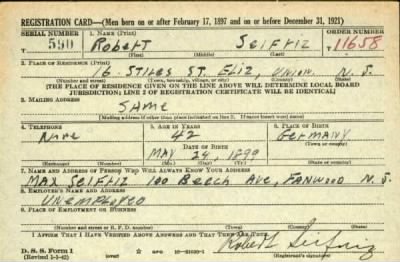 REGISTRATION CARD—(Men born on or after February 17, 1897 and on or before December 31, 1921)
SERIAL NUMBER 1. NAME (Print) ORDER NUMBER
590 Robert Seifriz 11658
(First) (Middle) (Last)
2. PLACE OF RESIDENCE (Print)
16 Stiles ST. Eliz, Union N. J.
(Number and street) (Town, township, village, or city) (County) (State)
[THE PLACE OF RESIDENCE GIVEN ON THE LINE ABOVE WILL DETERMINE LOCAL BOARD
JURISDICTION; LINE 2 OF REGISTRATION CERTIFICATE WILL BE IDENTICAL]
3. MAILING ADDRESS
SAME
[Mailing address if other than place indicated on line 2. If same insert word same]
4. TELEPHONE 5. AGE IN YEARS 6. PLACE OF BIRTH
None 42 Germany
DATE OF BIRTH
MAY 24, 1899
(Exchange) (Number) (Mo.) (Day) (Yr.) (State or country)
7. NAME AND ADDRESS OF PERSON WHO WILL ALWAYS KNOW YOUR ADDRESS
MAX SEIFRIZ 100 Beech Ave, FANWOOD N. J.
8. EMPLOYER'S NAME AND ADDRESS
Unemployed
9. PLACE OF EMPLOYMENT OR BUSINESS
(Number and street or R. F. D. number) (Town) (County) (State)
I AFFIRM THAT I HAVE VERIFIED ABOVE ANSWERS AND THAT THEY ARE TRUE.
D. S. S. Form 1
(Revised 1-1-42) (over)
Robert Seifriz
(Registrant's signature)